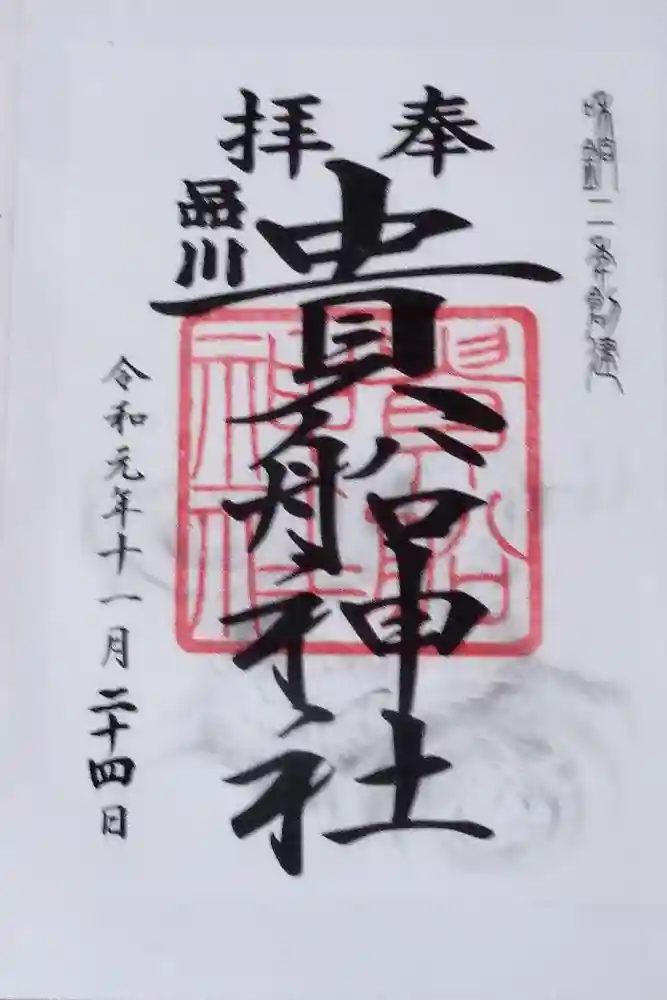 和銅二年創建
奉拝
品川
貴船神社
貴船
神社
令和元年十一月二十四日